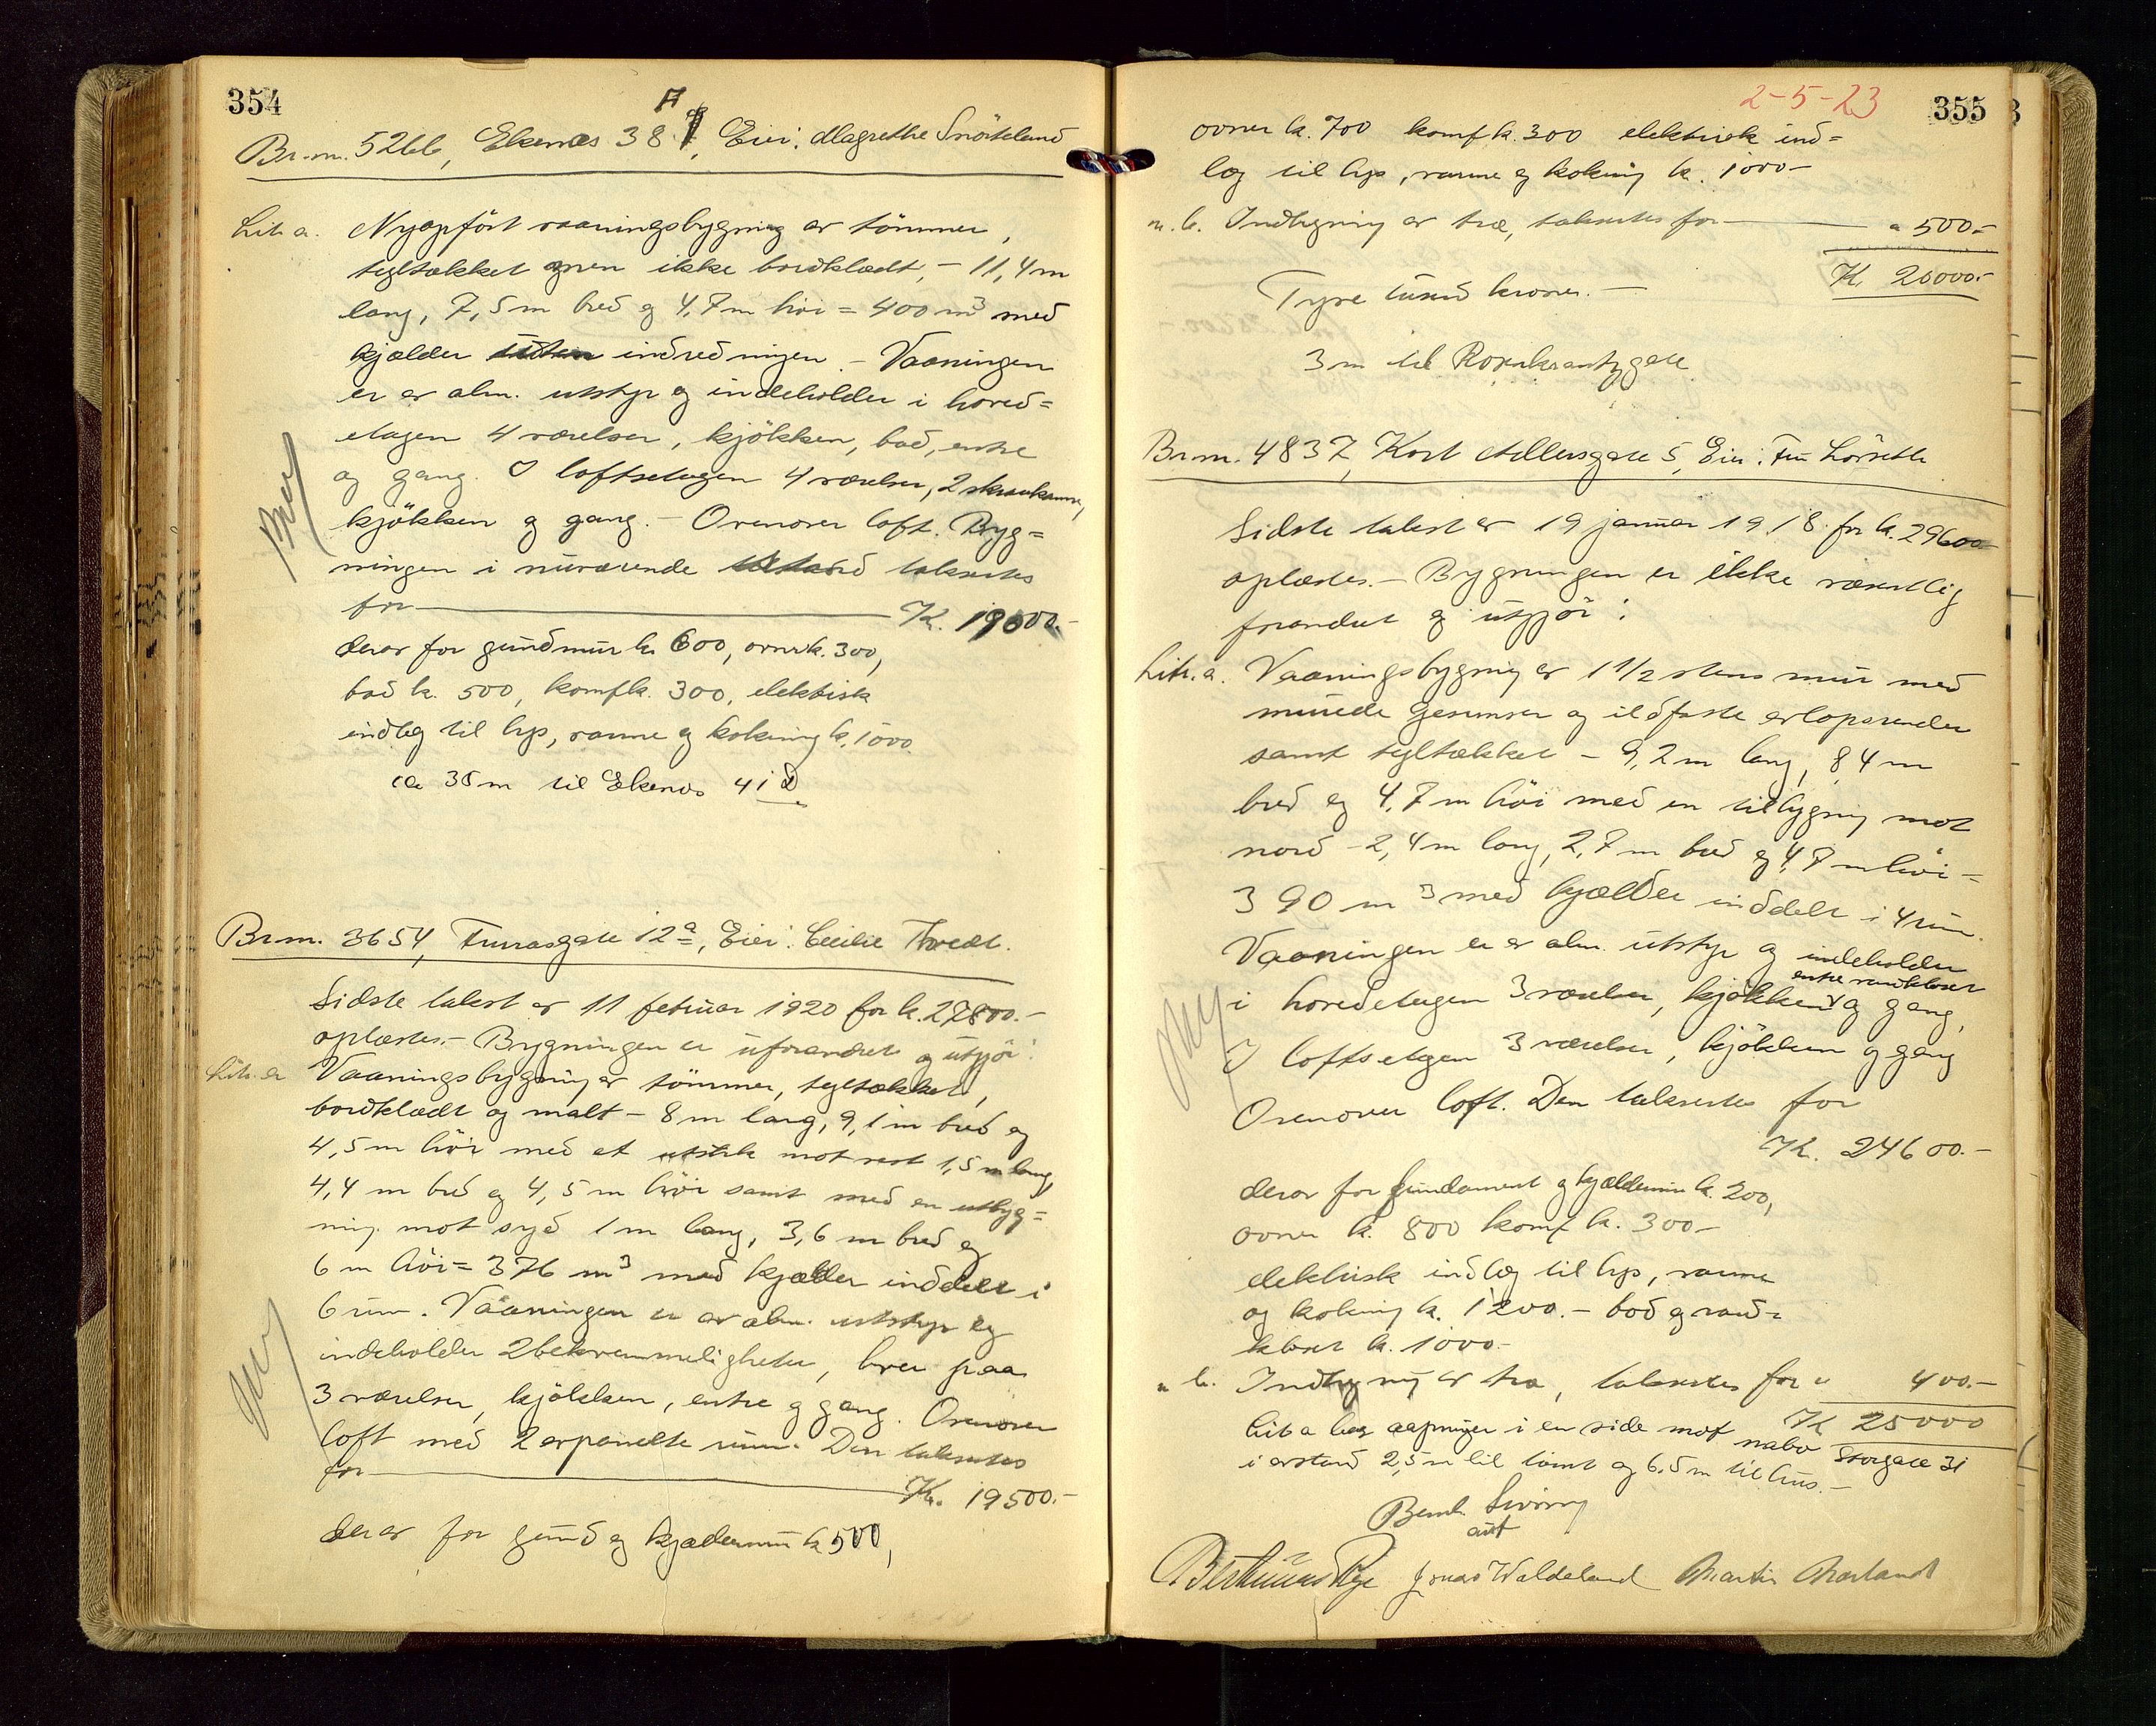 354
Br.nr. 5266, Ekenæs 38 A, Eier: Magrethe Snörteland
Lit a. Nyopfört vaaningsbygning av tömmer,
tegltækket men ikke bordklædt, - 11,4 m
lang, 7,5 m bred og 4,7 m höi = 400 m3 med
kjælder uten indredninger. - Vaaningen
er av alm. utstyr og indeholder i hoved=
etagen 4 værelser, kjökken, bad, entre
og gang. I loftsetagen 4 værelser, 2 skraakamre,
kjökken og gang. - Ovenover loft. Byg=
ningen i nuværende tilstand takseres
for Kr. 19600.-
derav for grundmur kr 600, ovner k. 300,
bad k. 500, komf k. 300, elektrisk
indlæg til lys, varme og kokning k. 1000.
ca 35 m til Ekenæs 41 d
Br.nr. 3654, Furrasgate 12a, Eier: Cecilie Tvedt.
Sidste takst av 11 februar 1920 for k. 27800.-
oplæstes. - Bygningen er uforandret og utgjör:
Litr. a Vaaningsbygning av tömmer, tegltækket,
bordklædt og malt - 8 m lang, 9,1 m bred og
4,5 m höi med et utstik mot vest 1,5 m lang,
4,4 m bred og 4,5 m höi samt med en utbyg=
ning mot syd 1 m lang, 3,6 m bred og
6 m höi = 376 m3 med kjælder inddelt i
6 rum. Vaaningen er av alm. utstyr og
indeholder 2 bekvemmeligheter, hver paa
3 værelser, kjökken, entre og gang. Ovenover
loft med 2 avpanelte rum. Den takseres
for Kr. 19500.-
derav for grund og kjældermur k 500,
2-5-23
355
ovner k. 700 komf k. 300 elektrisk ind=
læg til lys, varme og kokning k. 1000-
" b. Indhegning av træ, takseres for " 500.-
Kr. 20000.-
Tyve tusind kroner. -
3 m til Rosenkrantzgate
Br.nr. 4837, Kort Adlersgate 5, Eier: Fru Lörseth
Sidste takst av 19 januar 1918 for k. 29600
oplæstes. - Bygningen er ikke væsentlig
forandret og utgjör:
Litr. a. Vaaningsbygning av 1 1/2 stens mur med
murede gesimser og ildfaste avlöpsrender
samt tegltækket - 9,2 m lang, 8 4 m
bred og 4,7 m höi med en tilbygning mot
nord - 2,4 m lang, 2,7 m bred og 4,7 m höi =
390 m3 med kjælder inddelt i 4 rum.
Vaaningen er av alm. utstyr og indeholder
i hovedetagen 3 værelser, kjökken entre vandkloset og gang,
I loftsetagen 3 værelser, kjökken og gang
Ovenover loft. Den takseres for
Kr. 24600.-
derav for fundament og kjældermur k. 200,
ovner k. 800 komf k. 300-
elektrisk indlæg til lys, varme
og kokning k. 1200.- bad og vand=
kloset k. 1000.-
" b. Indhegning av træ, takseres for " 400.-
Kr 25000
Lit a har aapninger i en side mot nabo Storgate 31
i avstand 2,5 m til tomt og 6,5 m til hus.-
Jonas Waldeland